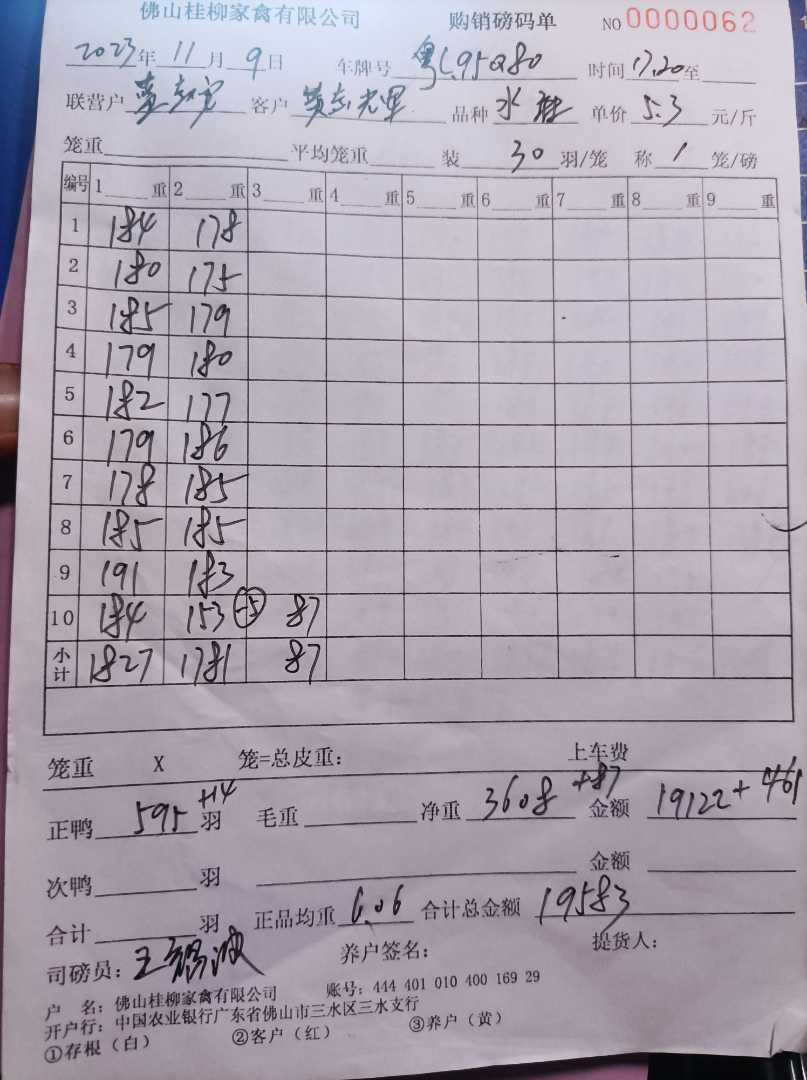 佛山桂柳家禽有限公司 购销磅码单 NO 0000062
2023年 11月 9日 车牌号 粤C.95Q80 时间 17.20至
联营户 客户 品种 水 单价 5.3 元/斤
笼重 平均笼重 装 30 羽/笼 称 1 笼/磅
编号 1 重 2 重 3 重 4 重 5 重 6 重 7 重 8 重 9 重
1 184 178
2 180 175
3 185 179
4 179 180
5 182 177
6 179 186
7 178 185
8 185 185
9 191 183
10 184 153 -5 87
小计 1827 1781 87
笼重 X 笼=总皮重: 上车费
正鸭 595+14 羽 毛重 净重 3608+87 金额 19122+461
次鸭 羽 金额
合计 羽 正品均重 6.06 合计总金额 19583
司磅员: 王 波 养户签名: 提货人:
户 名: 佛山桂柳家禽有限公司 账号: 444 401 010 400 169 29
开户行: 中国农业银行广东省佛山市三水区三水支行
①存根(白) ②客户(红) ③养户(黄)